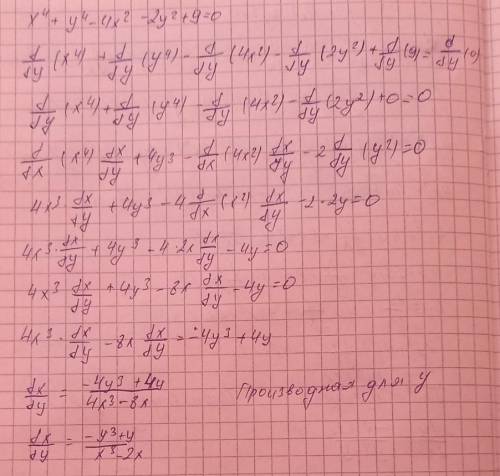 x⁴ + y⁴ - 4x² - 2y² + 9 = 0
d/dy (x⁴) + d/dy (y⁴) - d/dy (4x²) - d/dy (2y²) + d/dy (9) = d/dy (0)
d/dy (x⁴) + d/dy (y⁴) - d/dy (4x²) - d/dy (2y²) + 0 = 0
d/dx (x⁴) dx/dy + 4y³ - d/dx (4x²) dx/dy - 2 d/dy (y²) = 0
4x³ · dx/dy + 4y³ - 4 d/dx (x²) dx/dy - 2 · 2y = 0
4x³ · dx/dy + 4y³ - 4 · 2x dx/dy - 4y = 0
4x³ · dx/dy + 4y³ - 8x dx/dy - 4y = 0
4x³ · dx/dy - 8x dx/dy = -4y³ + 4y
dx/dy = (-4y³ + 4y)/(4x³ - 8x) Производная для y
dx/dy = (-y³ + y)/(x³ - 2x)